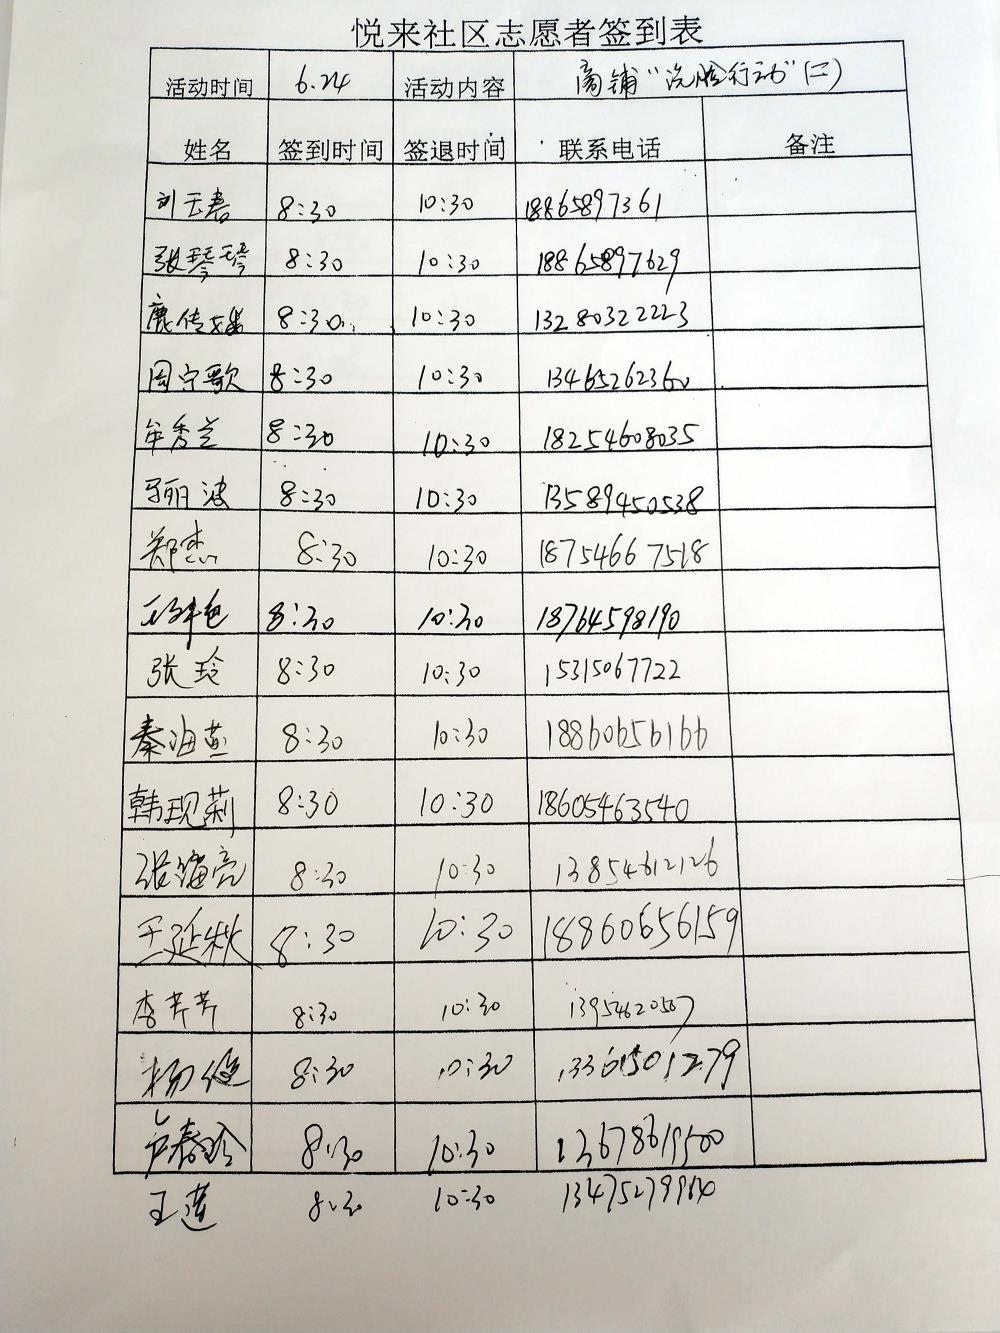 悦来社区志愿者签到表
活动时间 6.24 活动内容 商铺“洗脸行动”(二)
姓名 签到时间 签退时间 联系电话 备注
刘玉春 8:30 10:30 18865897361
张琴琴 8:30 10:30 18865897629
鹿传 8:30 10:30 13280322223
周宁歌 8:30 10:30 13465262360
牟秀兰 8:30 10:30 18254608035
丽波 8:30 10:30 13589450538
郑杰 8:30 10:30 18754667518
8:30 10:30 18764598190
张玲 8:30 10:30 15315067722
秦海燕 8:30 10:30 18860656166
韩现莉 8:30 10:30 18605463540
张海亮 8:30 10:30 13854612126
王延秋 8:30 10:30 18860656159
李芹芹 8:30 10:30 13954620507
杨健 8:30 10:30 13361501279
卢春玲 8:30 10:30 13678619500
王莲 8:30 10:30